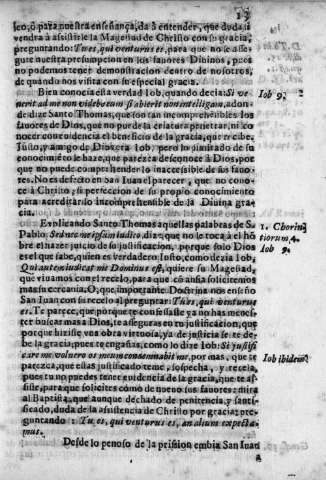 13
seo, ò para nuestra enseñança, da à entender, que duda si
vendrà à assistirle la Magestad de Christo con su gracia,
preguntando: Tu es, qui venturus es, para que no se asse-
gure nuestra presumpcion en los fauores Diuinos, pues
no podemos tener demonstracion dentro de nosotros,
de quando nos visita con su especial gracia.
Bien conocia esta verdad Iob, quando decia: Si ve- Iob 9.
nerit ad me non videbo eum si abierit non intelligam, adon-
de dize Santo Thomas, que son tan incomprehensibles los
fauores de Dios, que no puede la criatura
conocer con euidencia el beneficio de la gracia, que recibe:
Iusto, y amigo de Dios era Iob, pero lo limitado de su
conocimiento le haze, que parezca desconoce à Dios, por
que no puede comprehender lo inaccessible de sus fauo-
res. No es defecto en San Iuan el parecer, que no conoce
à Christo, si perfeccion de su propio conocimiento
para acreditarlo incomprehensible de la Diuina gra-
cia.
Explicando Santo Thomas aquellas palabras de S. 1. Chorin-
Pablo. Sed neque me ipsum iudico dize, que no le toca à el ho- tiorum 4.
bre el hazer juicio de su justificacion, porque solo Dios
es el que sabe, quien es verdadero Iusto, como dezia Iob; Iob 9.
Qui autem iudicat me Dominus est, quiere su Magestad,
que viuamos con el recelo, para que con ansia solicitemos
mas su cercania. O, que importante Doctrina nos enseña
San Iuan con su recelo al preguntar: Tu es, qui venturus
es. Te parece, que porque te confessaste ya no has menes-
ter buscar mas à Dios, te asseguras en tu justificacion, que
porque hiziste vna obra virtuosa, ya de justicia se te de-
be la gracia; pues te engañas, como lo dize Iob: Si justifi-
care me voluero os meum condemnabit me, por mas, que te Iob ibidem
parezca, que estàs justificado teme, sospecha, y recela,
pues tu no puedes tener euidencia de la gracia, que te as-
siste, para que solicites como de nueuo sus fauores: mira
al Baptista, que aunque dechado de penitencia, y santi-
ficado, duda de la assistencia de Christo por gracia: pre-
guntando: Tu es, qui venturus es, an alium expecta-
mus.
Desde lo penoso de la prission embia San Iuan
A